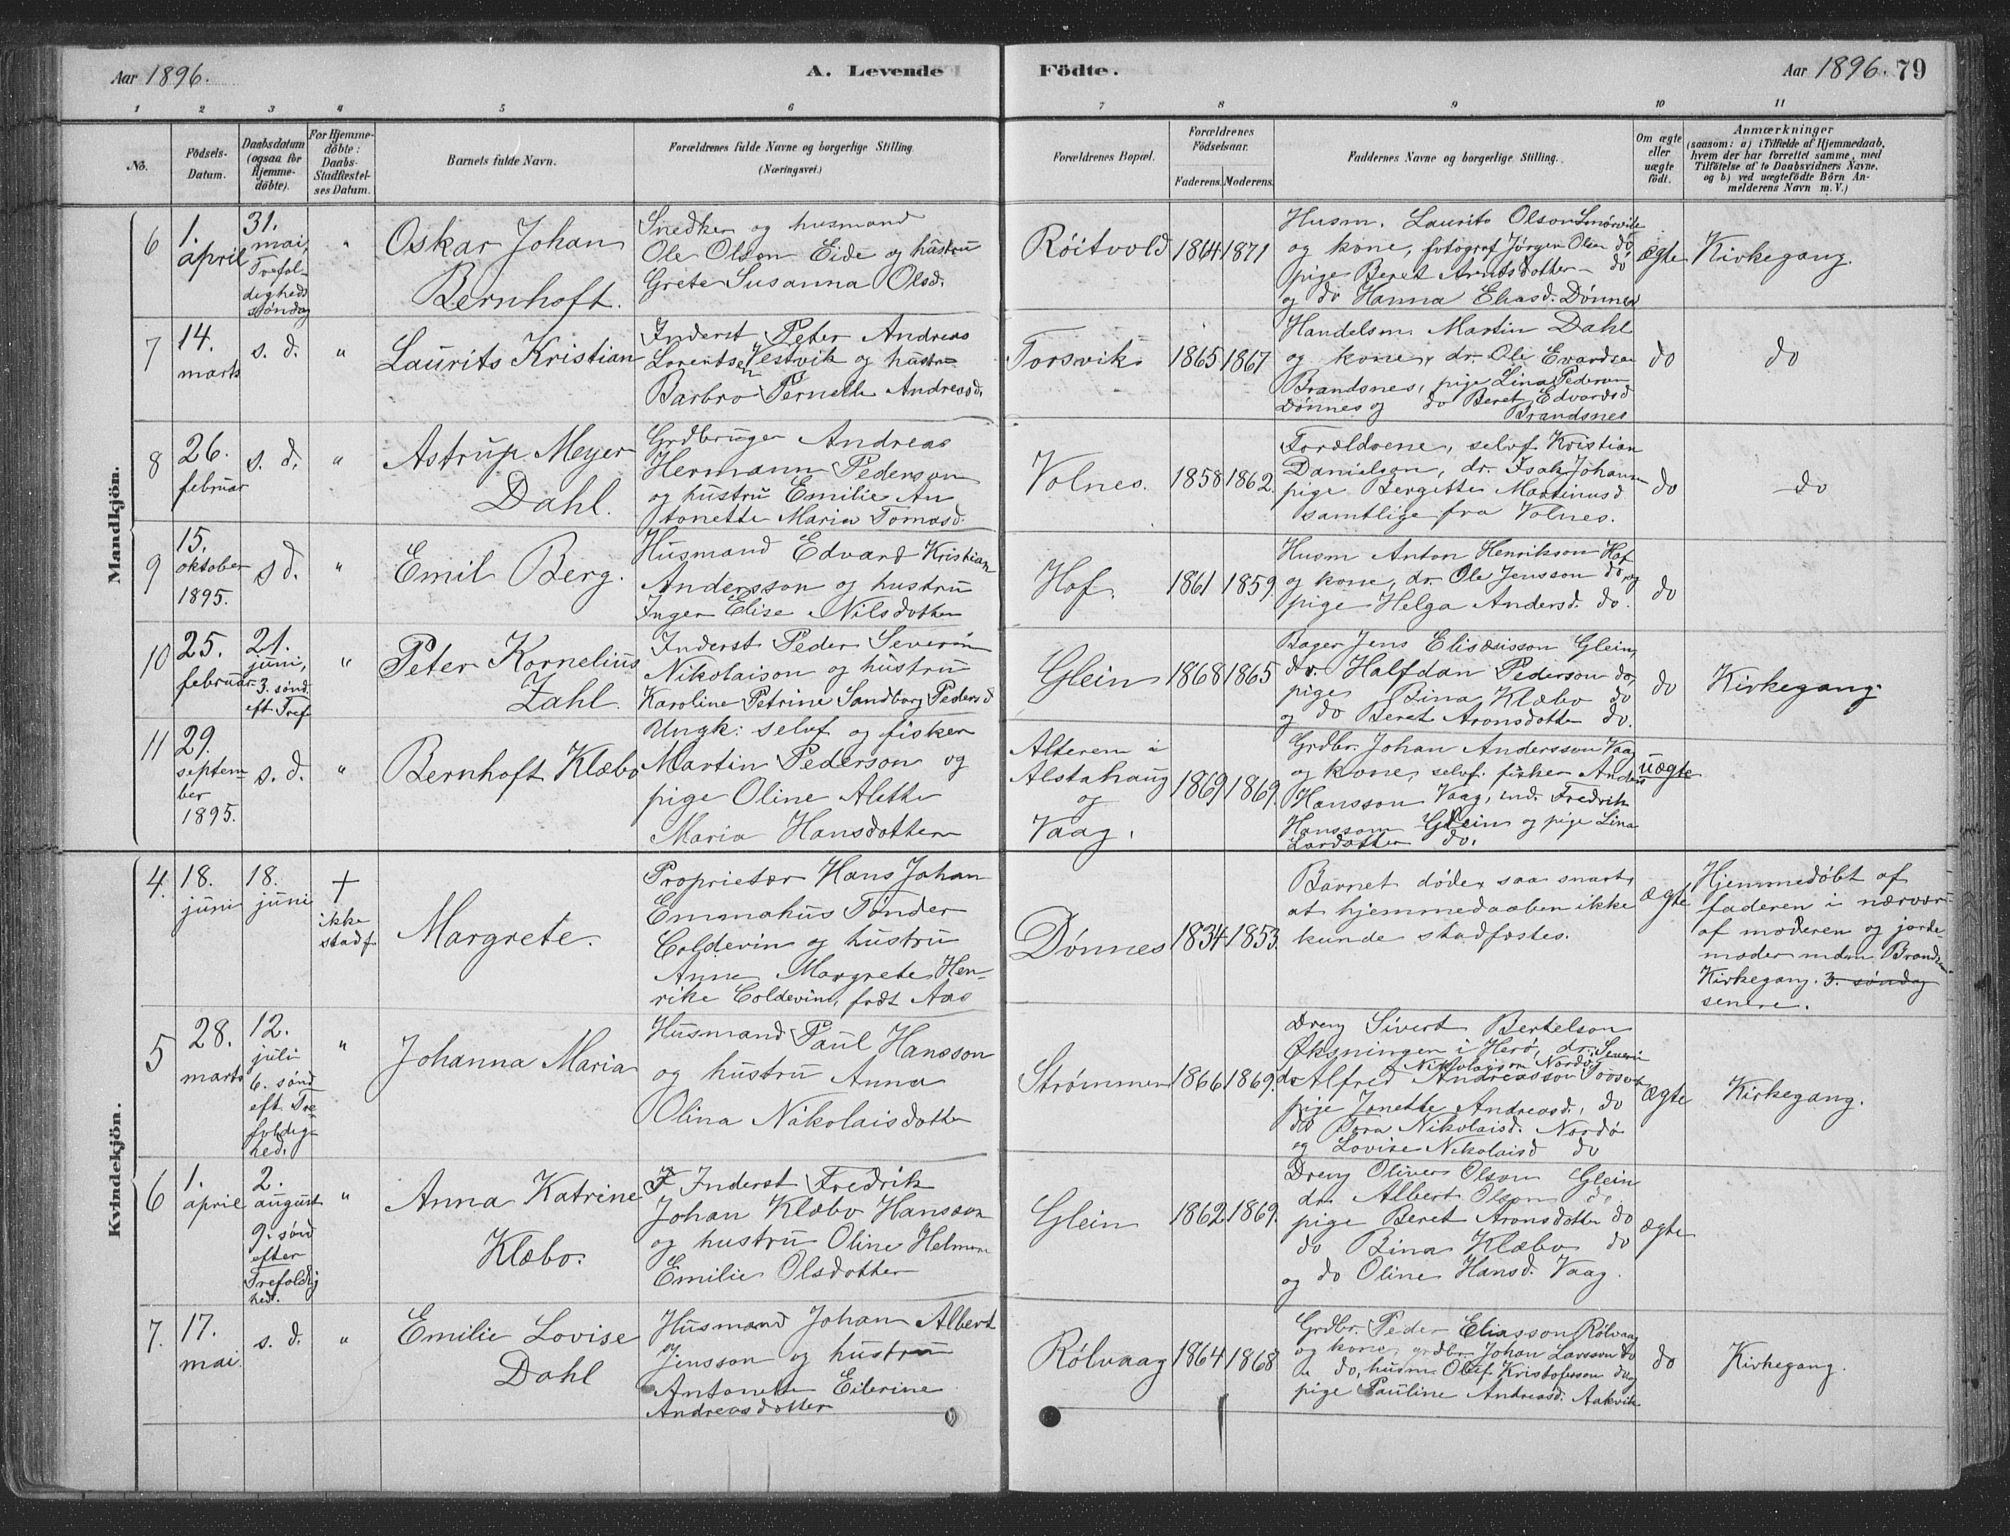 Aar 1896.
A. Levende
Födte.
Aar 1896. 79
1 2 3 4 5 6 7 8 9 10 11
No.
Födsels-
Datum.
Daabsdatum
(ogsaa for
Hjemme-
döbte).
For Hjemme-
döbte:
Daabs-
Stadfæstel-
ses Datum.
Barnets fulde Navn.
Forældrenes fulde Navne og borgerlige Stilling
(Næringsvei.)
Forældrenes Bopæl.
Forældrenes
Födselsaar.
Faderens. Moderens.
Faddernes Navne og borgerlige Stilling.
Om ægte
eller
uægte
födt.
Anmærkninger
(saasom: a) i Tilfælde af Hjemmedaab,
hvem der har forrettet samme, med
Tilföielse af to Daabsvidners Navne,
og b) ved uægtefödte Börn An-
melderens Navn m. V.)
Mandkjön.
6
1.
april
31.
mai,
Trefol-
digheds
søndag
"
Oskar Johan
Bernhoft.
Snedker og husmand
Ole Olson Eide og hustru
Grete Susanna Olsd.
Röitvold
1864 1871
Husm. Laurits Olson Smørvik
og kone, fotograf Jörgen Olsen do
pige Beret Arntsdotter - do
og do Hanna Eliasd. Dønnes
ægte
Kirkegang.
7
14.
marts
s. d.
"
Laurits Kristian
Inderst Peter Andreas
Lorentsen Vestvik og hustru
Barbro Pernelle Andreasd.
Torsvik
1865 1867
Handelsm. Martin Dahl
og kone, dr. Ole Evardsen
Brandsnes, pige Lina Pedersen
Dønnes og do Beret Edvardsd
Brandsnes
do
do
8
26.
februar
s. d.
"
Astrup Meyer
Dahl.
Grdbruger Andreas
Hermann Pederson
og hustru Emilie An
tonette Maria Tomasd.
Volnes.
1858 1862.
Forældrene, selvf. Kristian
Danielson, dr. Isak Johann
pige Bergitte Martinusd
samtlige fra Volnes.
do
do
9
15.
oktober
1895.
s d.
"
Emil Berg.
Husmand Edvard Kristian
Andersson og hustru
Inger Elise Nilsdotter
Hof.
1861 1859.
Husm Anton Henrikson Hof
og kone, dr. Ole Jensson do og
pige Helga Andersd. do.
do
10
25.
februar
21.
juni,
3. sønd.
eft. Tref.
"
Peter Kornelius
Zahl.
Inderst Peder Severin
Nikolaison og hustru
Karoline Petrine Sandborg Pedersd
Glein
1868 1865
Bager Jens Elisæisson Glein,
dr. Halfdan Pederson do,
pige Bina Klæbo do
og do Beret Aronsdotter do.
do
Kirkegang.
11
29.
septem
ber
1895.
s. d.
"
Bernhoft Klæbo
Ungk: selvf og fisker
Martin Pederson og
pige Oline Alette
Maria Hansdotter
Alteren i
Alstahaug
og
Vaag.
1869 1869.
Grdbr. Johan Andersson Vaag
og kone, selvf. fisker Anders
Hansson Vaag, ind. Fredrik
Hansson Glein og pige Lina
Larsdotter do.
uægte
Kvindekjön.
4.
18.
juni
18.
juni
+
ikke
stadf.
Margrete.
Proprietær Hans Johan
Emmahus Tönder
Coldevin og hustru
Anne Margrete Hen-
rike Coldevin, født Aas
Dønnes
1834 1853.
Barnet døde, saa snart,
at hjemmedaaben ikke
kunde stadfæstes.
ægte
Hjemmedøbt af
faderen i nærvær
af moderen og jorde-
moder mdm. Brands
Kirkegang. 3. søndag
senere.
5
28.
marts
12.
juli
6. sønd
eft. Tre-
foldig-
hed.
"
Johanna Maria
Husmand Paul Hansson
og hustru Anna
Olina Nikolaisdotter
Strømmen
1866 1869.
Dreng Sivert Bertelson
Øksningen i Herø, dr. Severin
Nikolaison Nordø
do Alfred Andreasson Torsvik
pige Jonette Andreasd. do
do Dora Nikolaisd. Nordø
og Lovise Nikolaisd do
ægte
Kirkegang.
6
1.
april
2.
august
9. sønd
efter
Trefoldig
hed.
"
Anna Katrine
Klæbo.
Inderst Fredrik
Johan Klæbo Hansson
og hustru Oline Helmine
Emilie Olsdotter
Glein
1862 1869.
Dreng Oliver Olson Glein
dr. Albert Olson do.
pige Beret Aronsdotter do
do Bina Klæbo do
og do Oline Hansd. Vaag.
ægte
7.
17.
mai.
s. d.
"
Emilie Lovise
Dahl
Husmand Johan Albert
Jensson og hustru
Antonette Eilerine
Andreasdotter
Rölvaag
1864 1868
Grdbr. Peder Eliasson Rölvaag
og kone, grdbr. Johan Larsson do
do, husm. Olaf Kristofersson do og
pige Pauline Andreasd. Aakvik
do
Kirkegang.